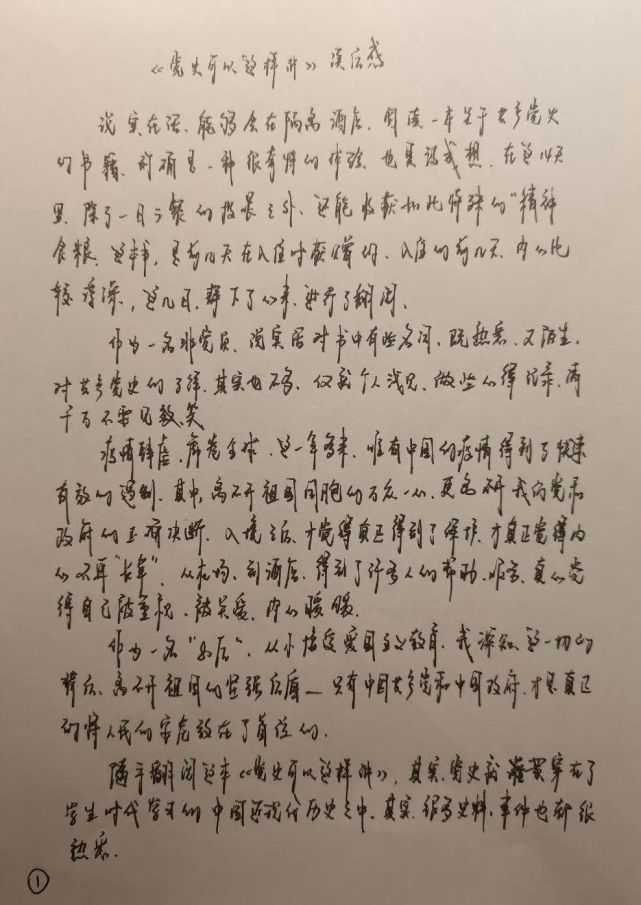 《党史可以这样讲》读后感
说实在话、能够在隔离酒店、阅读一本关于共产党史
的书籍、的确是一种很奇特的体验 也真没想、在这14天
里、除了一日三餐的投喂之外、还能收获如此特殊的“精神
食粮”、这本书，是前几天在入住时获赠的、入住的前几天、内心比
较浮躁，这几日，静下了心来，进行了翻阅、
作为一名非党员、说实话对书中有些名词、既熟悉、又陌生、
对共产党史的了解、其实也不多、仅就个人浅见、做些心得记录、请
千万不要见教笑
疫情肆虐、席卷全球、这一年多来、唯有中国的疫情得到了快速
有效的遏制、其中，离不开祖国同胞的万众一心、更离不开我们党和
政府的正确决断、入境之后、才觉得真正得到了保护、才真正觉得内
心不再“长草”、从机场、到酒店、得到了许多人的帮助、照顾、真心觉
得自己被重视、被关爱、内心暖暖、
作为一名“80后”、从小接受爱国主义教育、我深知这一切的
背后、离不开祖国的坚强后盾—只有中国共产党和中国政府、才是真正
的将人民的安危放在了首位的、
随手翻阅这本《党史可以这样讲》，其实、党史就贯穿在了
学生时代学习的中国近现代历史之中、其实、很多史料、事件也都很
熟悉、
1